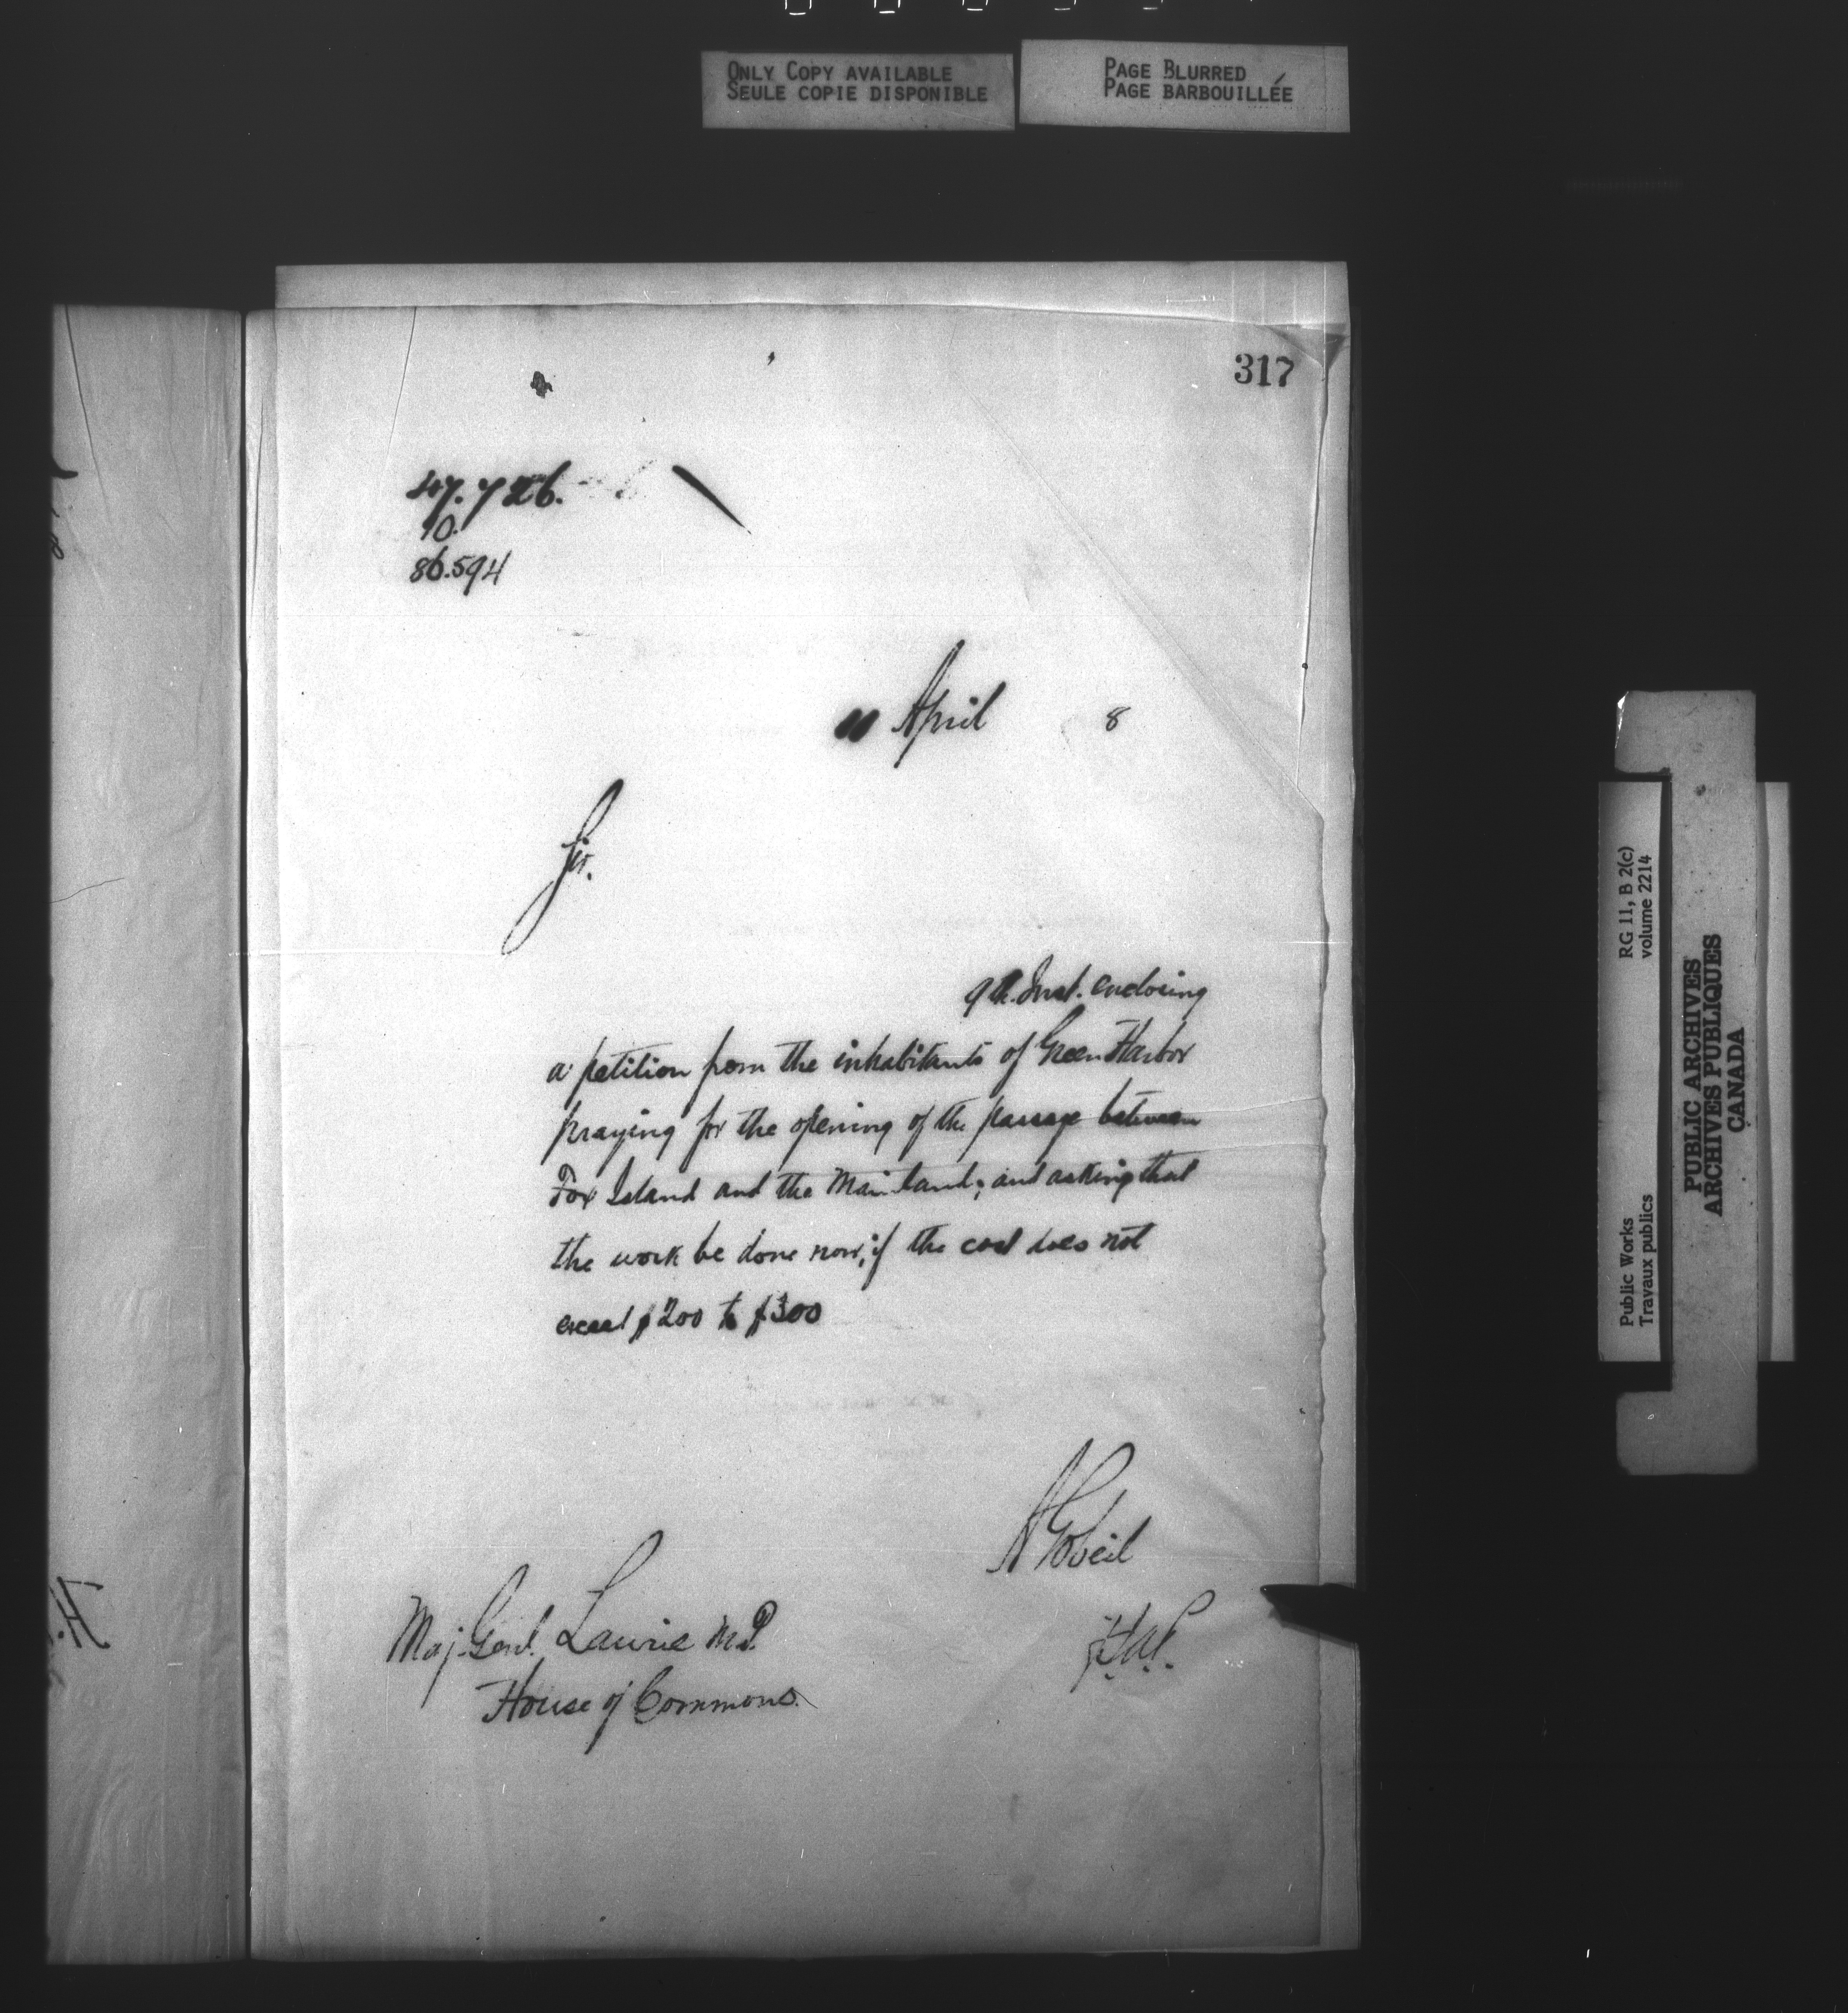 ONLY COPY AVAILABLE
SEULE COPIE DISPONIBLE
PAGE BLURRED
PAGE BARBOUILLÉE
317
47.726.
10.
86.594
11 April 8
Sir.
9th. Inst. enclosing
a petition from the inhabitants of Green Harbor
praying for the opening of the passage between
Fox Island and the Mainland; and asking that
the work be done now, if the cost does not
exceed $200 to $300
A Gobeil
Maj. Genl. Laurie M.P.
House of Commons.
RG 11, B 2(c)
volume 2214
Public Works
Travaux publics
PUBLIC ARCHIVES
ARCHIVES PUBLIQUES
CANADA